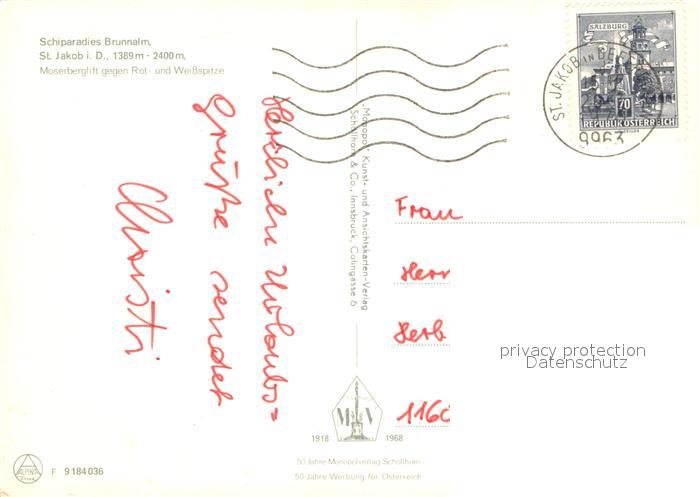 Schiparadies Brunnalm,
St. Jakob i. D., 1389 m - 2400 m,
Moserberglift gegen Rot- und Weißspitze
Herzlichen Urlaubs=
grüße sendet
Christi
"Monopol" Kunst- und Ansichtskarten-Verlag
Schöllhorn & Co., Innsbruck, Colingasse 6
SALZBURG
70
REPUBLIK ÖSTERREICH
ST. JAKOB IN
9963
Frau
Herr
Herb
privacy protection
Datenschutz
116
M V
1918 1968
50 Jahre Monopolverlag Schöllhorn
50 Jahre Werbung für Österreich
ALPINA
F 9184036